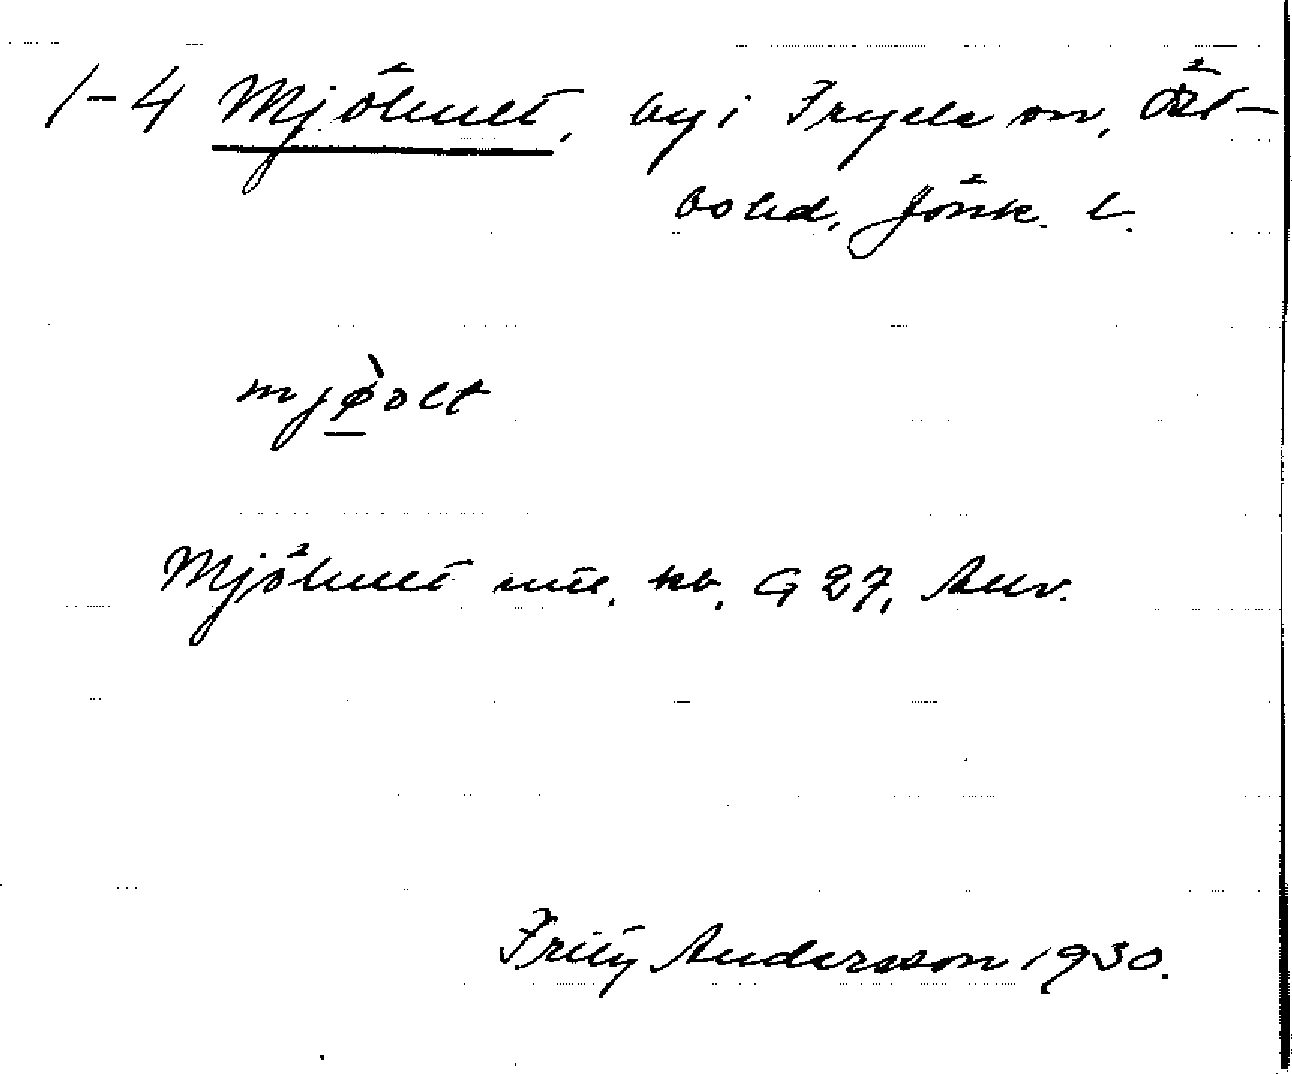 1-4 Mjöhult, by i Fryele sn, Öst-
bo hd, Jönk. l.
mjø̀olt
Mjöhult utt. kb. G 27, Anv.
Fritz Andersson 1930.